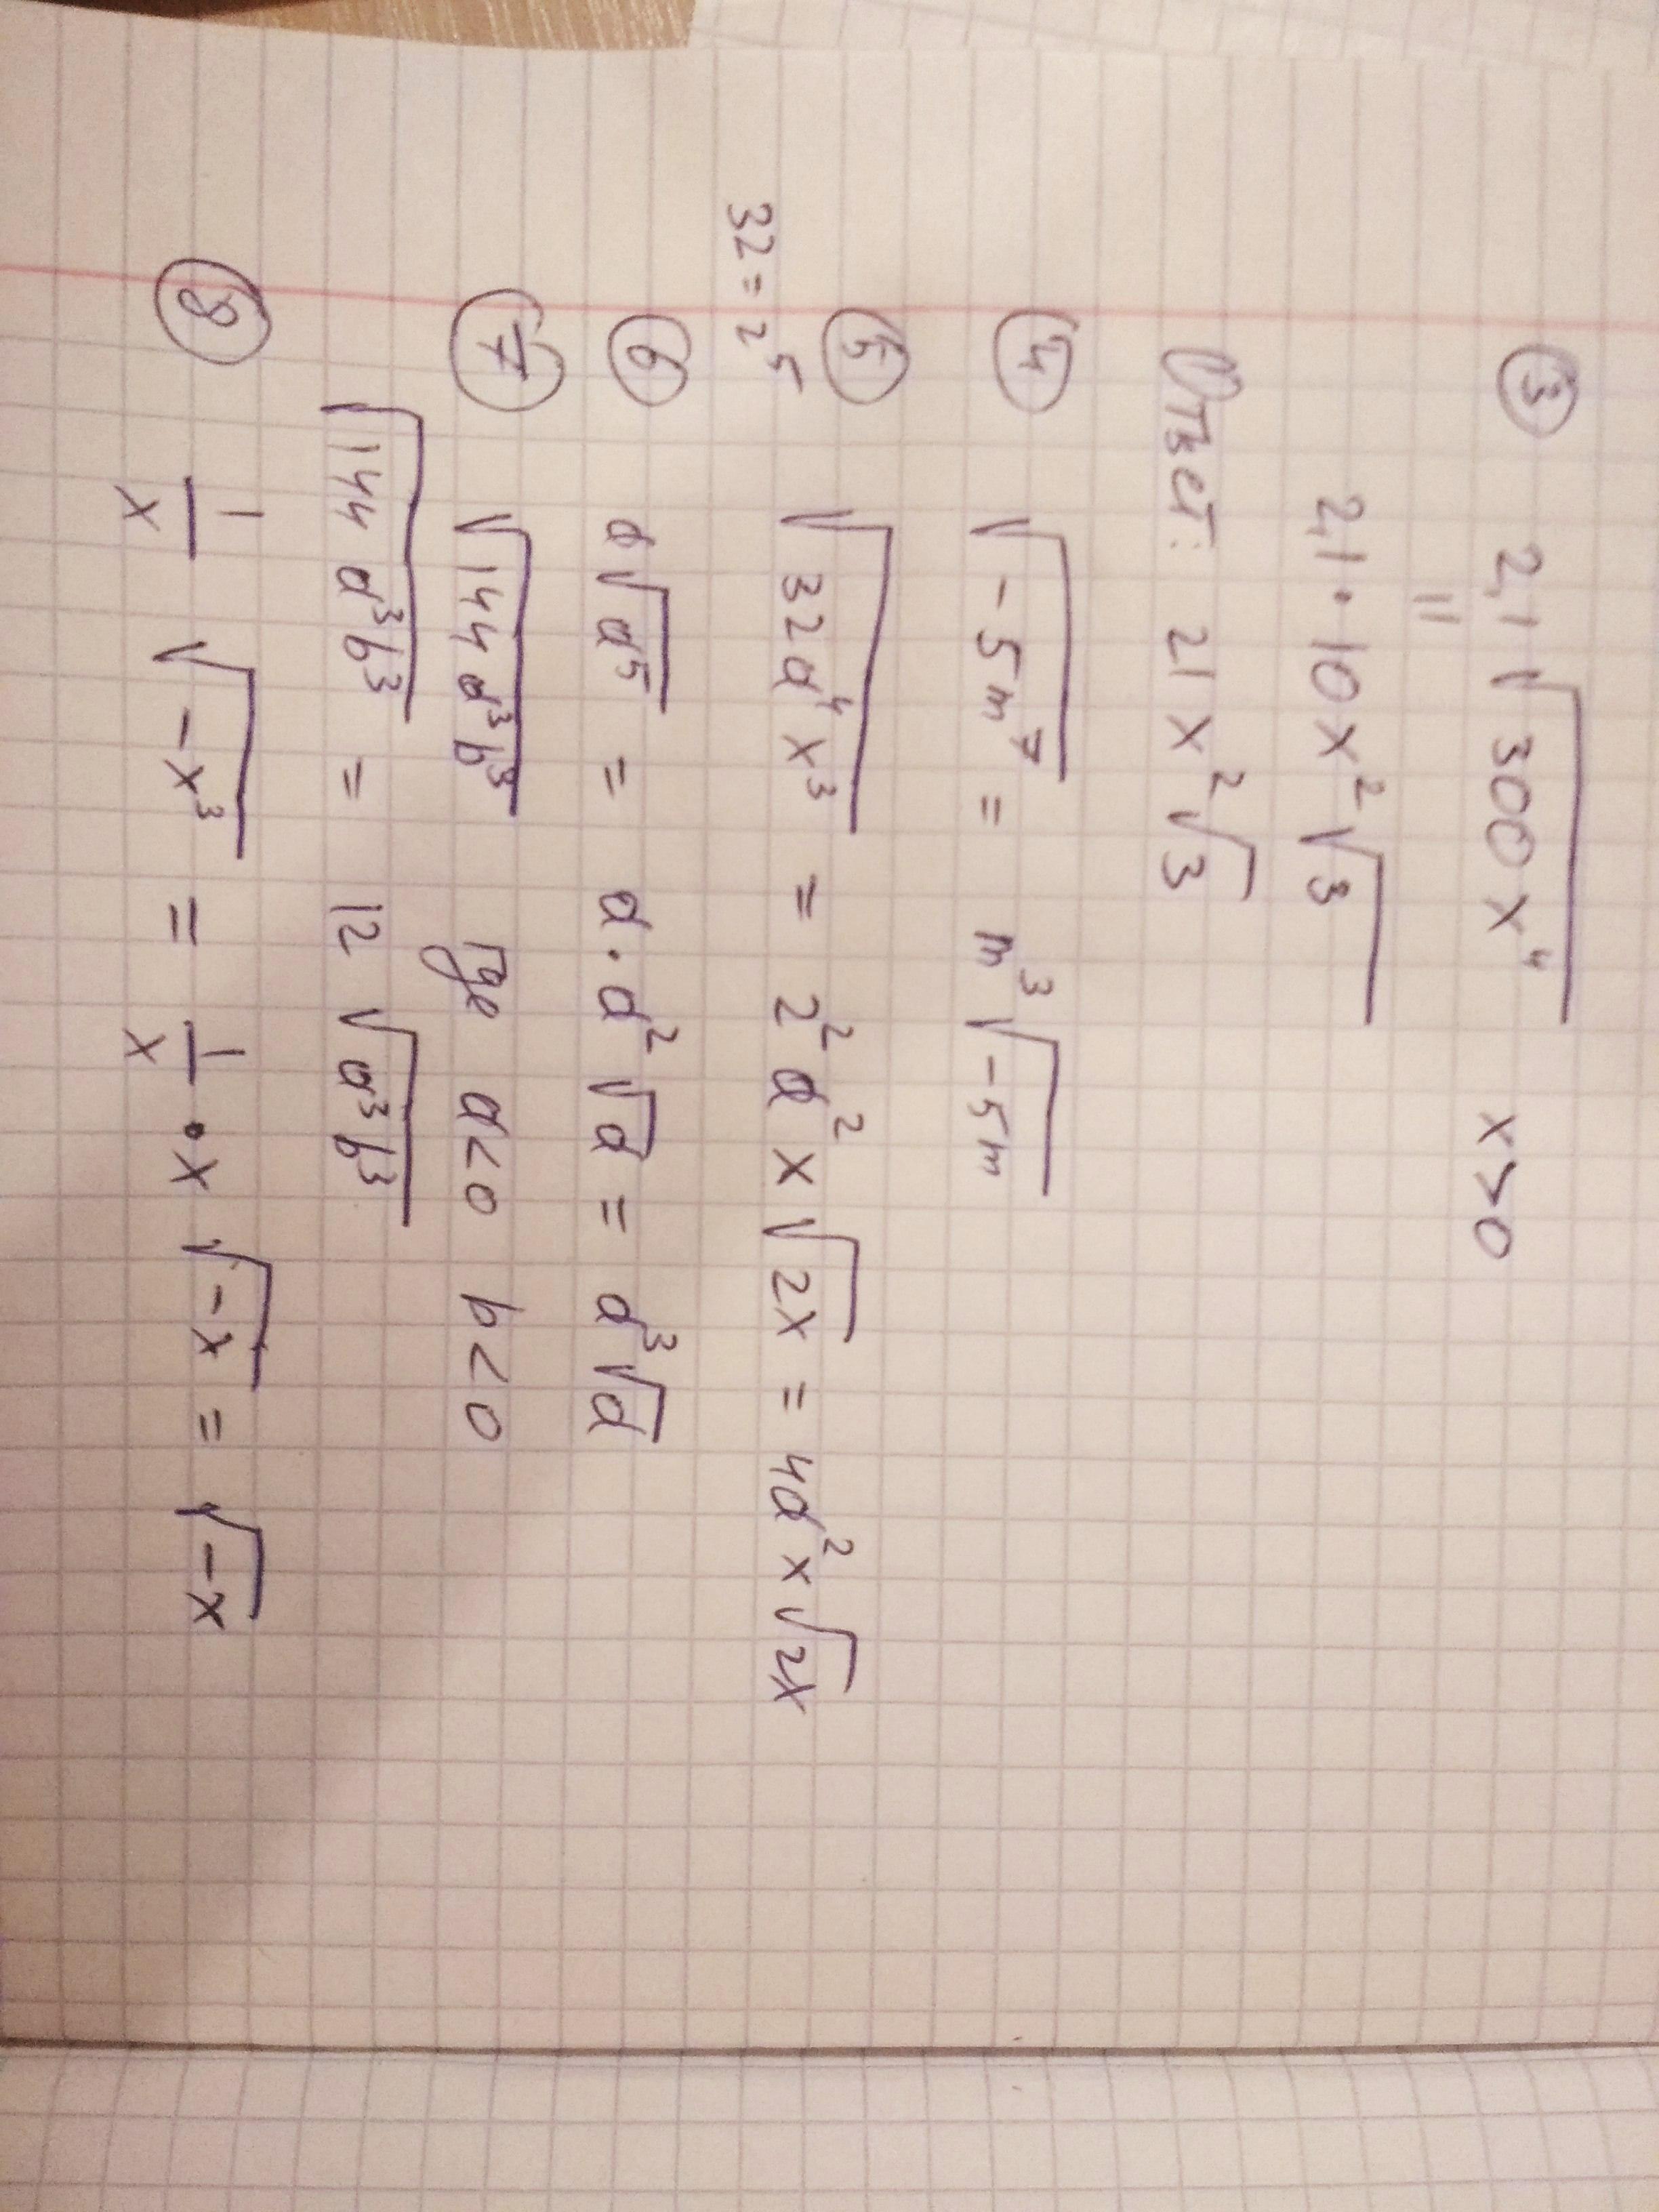 ③ 2,1√300x⁴ x>0
॥
2,1·10x²√3
Ответ: 21x²√3
④ √-5m⁷ = m³√-5m
⑤ √32a⁴x³ = 2²a²x√2x = 4a²x√2x
32=2⁵
⑥ a√a⁵ = a·a²√a = a³√a
⑦ √144a³b³ где a<0 b<0
√144a³b³ = 12√a³b³
⑧ 1/x √-x³ = 1/x·x√-x = √-x